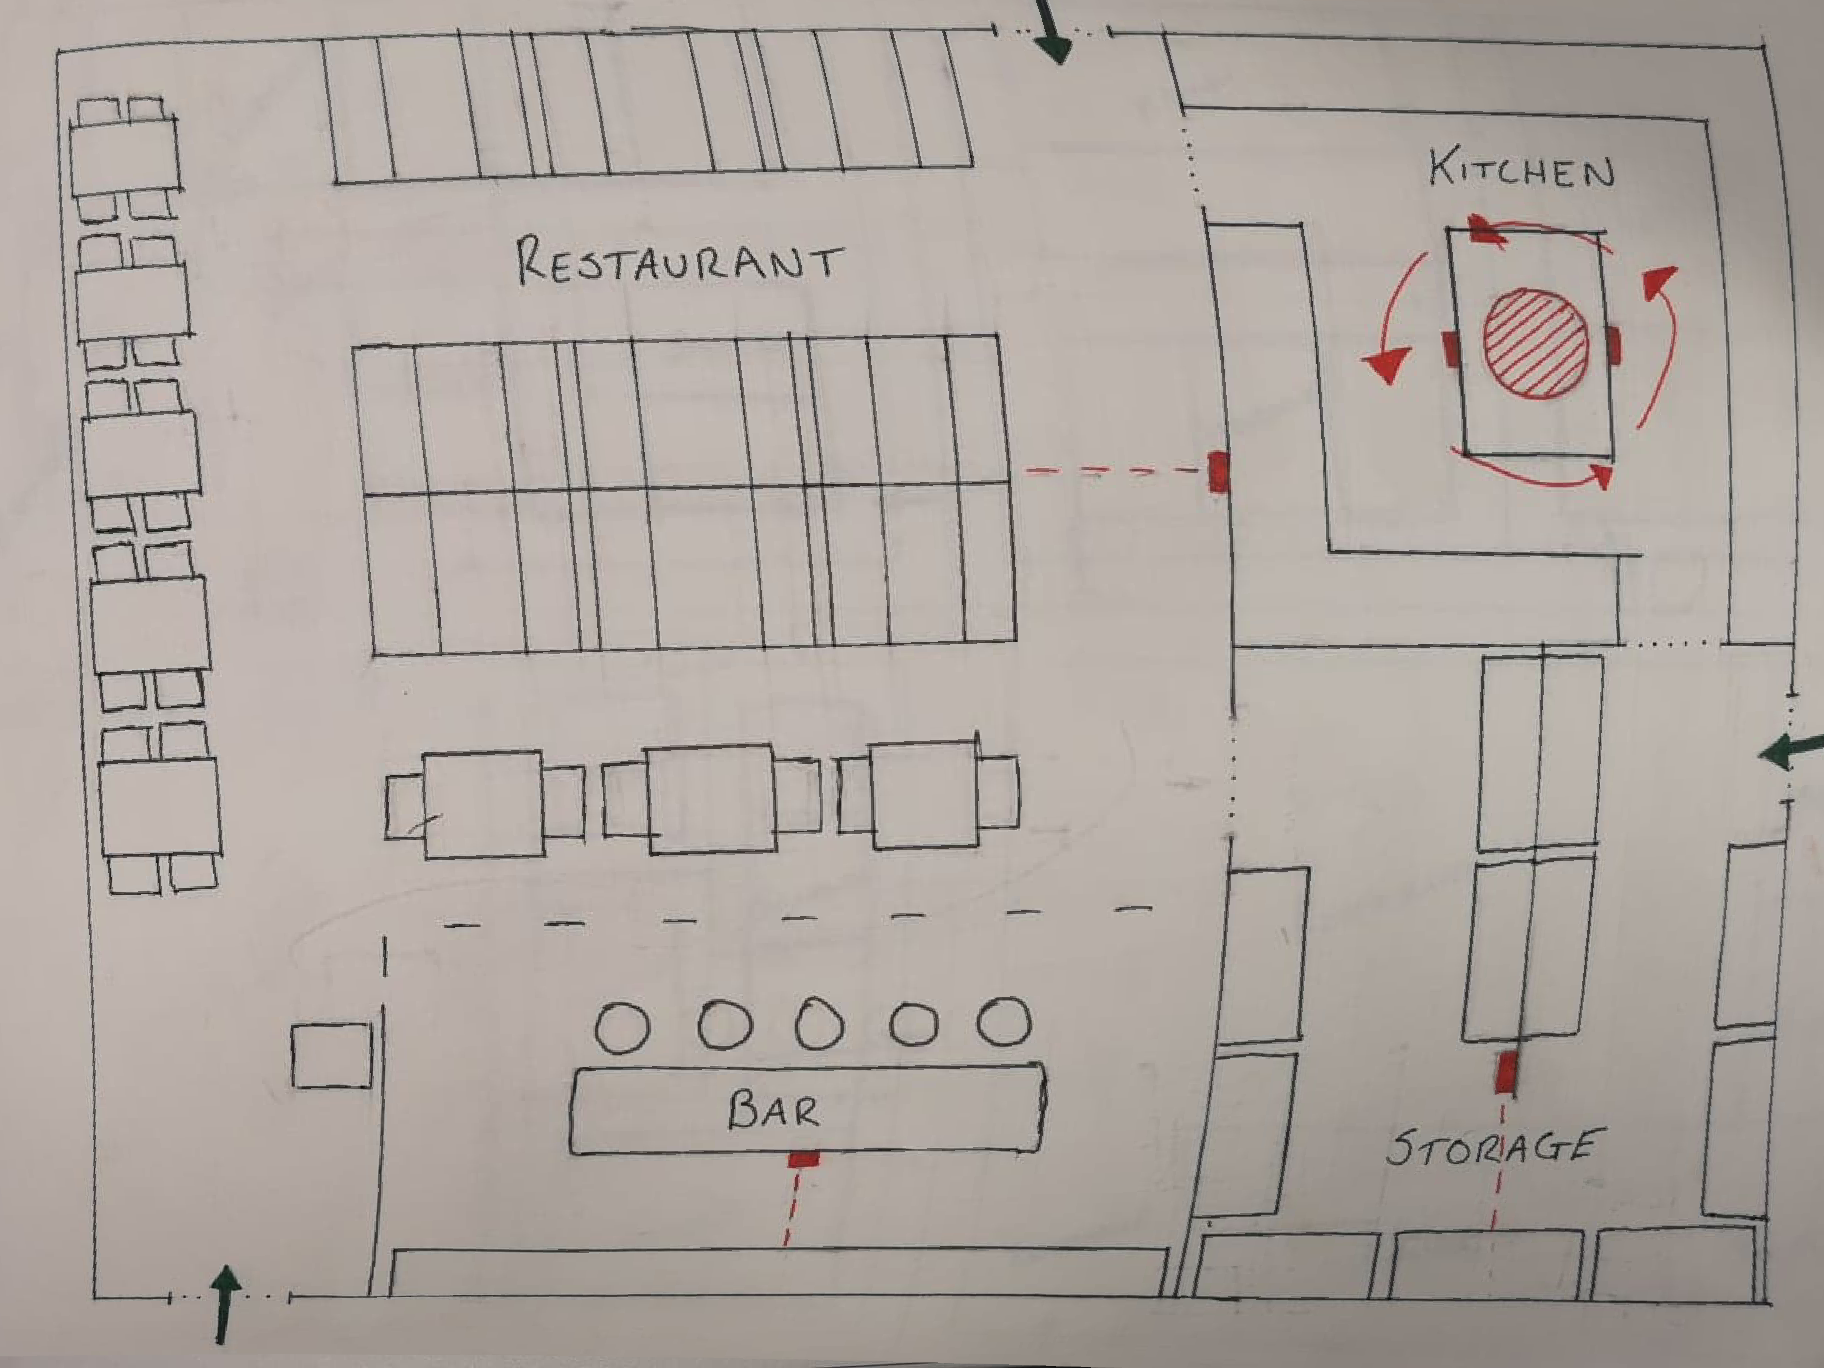 KITCHEN
RESTAURANT
BAR
STORAGE